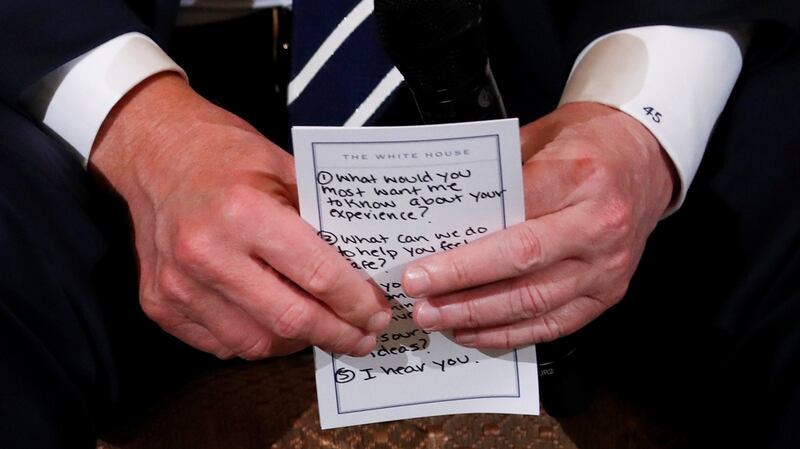 45
THE WHITE HOUSE
① What would you
most want me
to know about your
experience?
② What can we do
to help you feel
safe?
ideas?
⑤ I hear you.